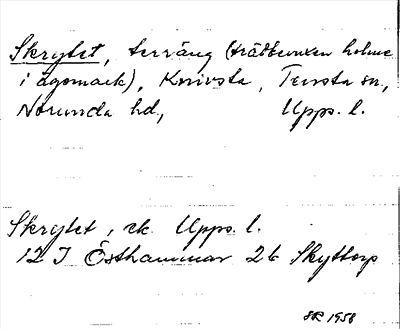 Skrytet, terräng (trädbevuxen holme
i ågomark), Knivsta, Tensta sn,
Norunda hd, Upps. l.
Skrytet, ek. Upps. l.
12 I Östhammar 2b Skyttorp
1958